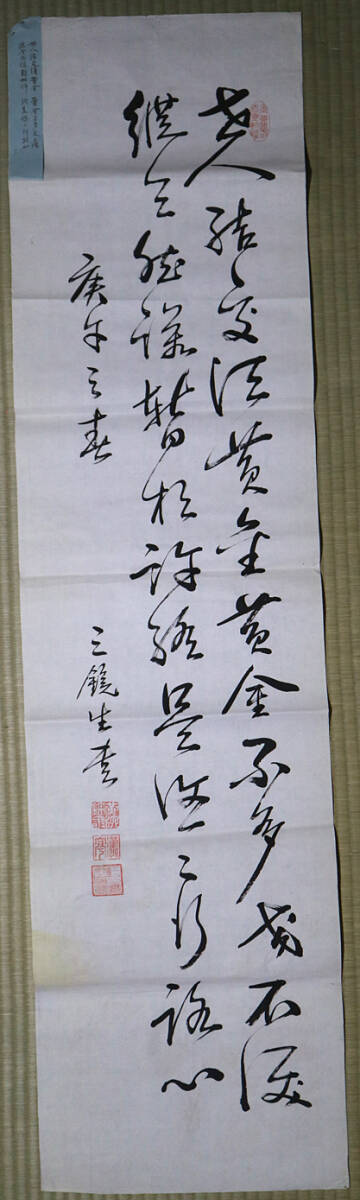 世人結交須黄金黄金不多交不深
縱令然諾暫相許終是悠々行路心
庚午之春
三鏡生書